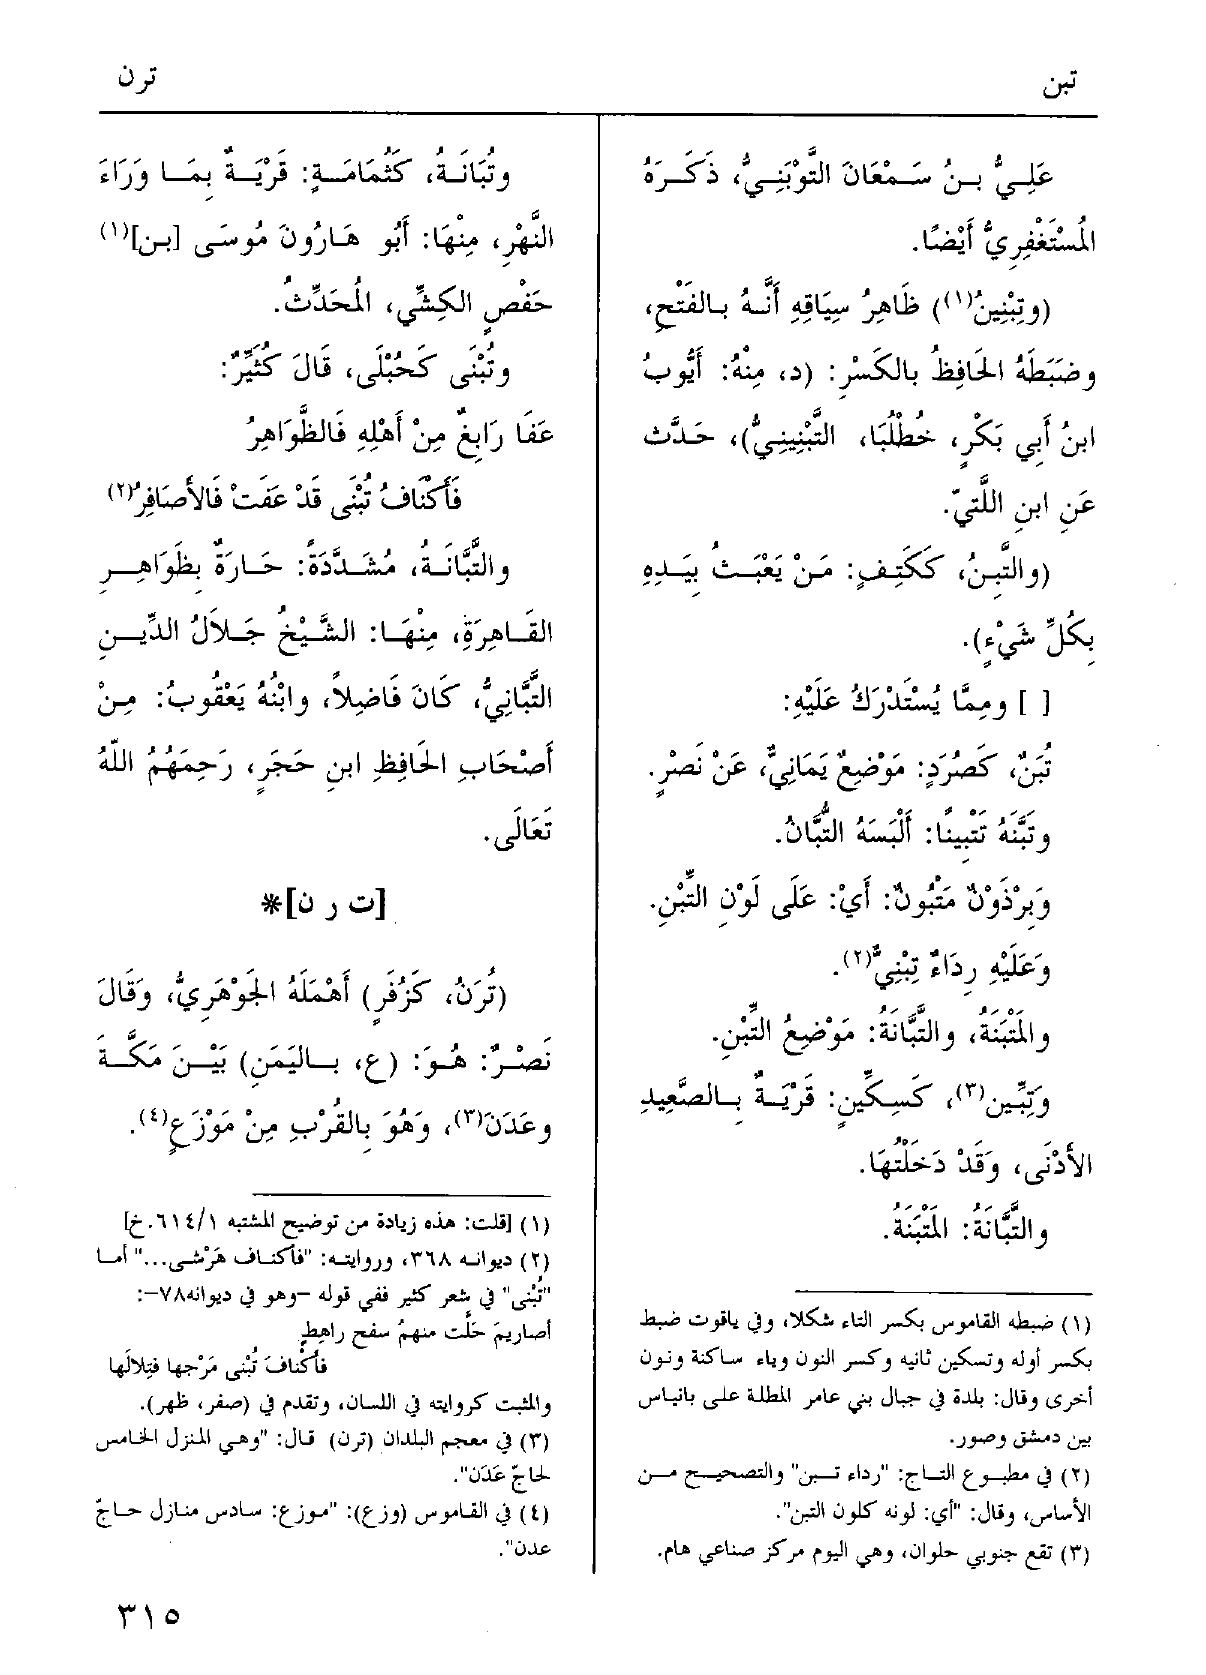 تبن
ترن
عَلِيُّ بـنُ سَـمْعَانَ التَّوْبَنِـيُّ، ذَكَـرَهُ
المُسْتَغْفِرِيُّ أَيْضًا.
(وتِبْنِينُ(١)) ظَاهِرُ سِيَاقِهِ أَنَّـهُ بـالفَتْحِ،
وضَبَطَهُ الحَافِظُ بالكَسْرِ: (د، مِنْهُ: أَيُّوبُ
ابنُ أَبِي بَكْرٍ، خُطْلُبَا، التَّبْنِينِيُّ)، حَدَّثَ
عَنِ ابنِ اللَّتِيّ.
(والتَّبِـنُ، كَكَتِـفٍ: مَـنْ يَعْبَـثُ بِيَـدِهِ
بِكُلِّ شَيْءٍ).
[ ] ومِمَّا يُسْتَدْرَكُ عَلَيْهِ:
تُبَنٌ، كَصُرَدٍ: مَوْضِعٌ يَمَانِيٌّ، عَنْ نَصْرٍ.
وتَبَّنَهُ تَتْبِينًا: أَلْبَسَهُ التُّبَّانُ.
وَبِرْذَوْنٌ مَتْبُونٌ: أَيْ: عَلَى لَوْنِ التِّبْنِ.
وَعَلَيْهِ رِدَاءٌ تِبْنِيٌّ(٢).
والمَتْبَنَةُ، والتَّبَّانَةُ: مَوْضِعُ التِّبْنِ.
وَتِبِّين(٣)، كَسِـكِّينٍ: قَرْيَـةٌ بـالصَّعِيدِ
الأَدْنَى، وَقَدْ دَخَلْتُهَا.
والتَّبَّانَةُ: المَتْبَنَةُ.
(١) ضبطه القاموس بكسر التاء شكلا، وفي ياقوت ضبط
بكسر أوله وتسكين ثانيه وكسر النون وياء ساكنة ونون
أخرى وقال: بلدة في جبال بني عامر المطلة على بانياس
بين دمشق وصور.
(٢) في مطبـوع التـاج: "رداء تـبن" والتصحيـح مـن
الأساس، وقال: "أي: لونه كلون التبن".
(٣) تقع جنوبي حلوان، وهي اليوم مركز صناعي هام.
وتُبَانَـةُ، كَثُمَامَـةٍ: قَرْيَـةٌ بِمَـا وَرَاءَ
النَّهْرِ، مِنْهَا: أَبُو هَـارُونَ مُوسَى [بـن](١)
حَفْصٍ الكِشِّي، المُحَدِّثُ.
وتُبْنَى كَحُبْلَى، قَالَ كُثَيِّرٌ:
عَفَا رَابِغٌ مِنْ أَهْلِهِ فَالظَّوَاهِرُ
فَأَكْنَافُ تُبْنَى قَدْ عَفَتْ فَالأَصَافِرُ(٢)
والتَّبَّانَـةُ، مُشَـدَّدَةً: حَـارَةٌ بِظَوَاهِـرِ
القَـاهِرَةِ، مِنْهَـا: الشَّـيْخُ جَـلاَلُ الدِّيـنِ
التَّبَّانِيُّ، كَانَ فَاضِلاً، وابْنُهُ يَعْقُوبُ: مِـنْ
أَصْحَابِ الحَافِظِ ابنِ حَجَرٍ، رَحِمَهُمُ اللّهُ
تَعَالَى.
[ت ر ن]*
(تُرَنُ، كَزُفَرٍ) أَهْمَلَهُ الجَوْهَرِيُّ، وَقَالَ
نَصْـرٌ: هُـوَ: (ع، بـاليَمَنِ) بَيْـنَ مَكَّـةَ
وعَدَنَ(٣)، وَهُوَ بِالقُرْبِ مِنْ مَوْزَعٍ(٤).
(١) [قلت: هذه زيادة من توضيح المشتبه ٦١٤/١.خ]
(٢) ديوانـه ٣٦٨، وروايتـه: "فأكنـاف هَرْشـى..." أمـا
"تُبْنى" في شعر كثير ففي قوله -وهو في ديوانه٧٨-:
أصاريمَ حَلَّت منهمُ سفح راهطٍ
فأكْنافَ تُبْنى مَرْجها فتِلالَها
والمثبت كروايته في اللسان، وتقدم في (صفر، ظهر).
(٣) في معجم البلدان (ترن) قال: "وهي المنزل الخامس
لحاجّ عَدَن".
(٤) في القاموس (وزع): "موزع: سادس منازل حـاجّ
عدن".
٣١٥